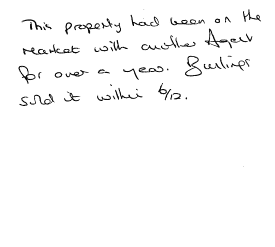 This property had been on the
market with another Agent
for over a year. Burlings
sold it within 6/12.